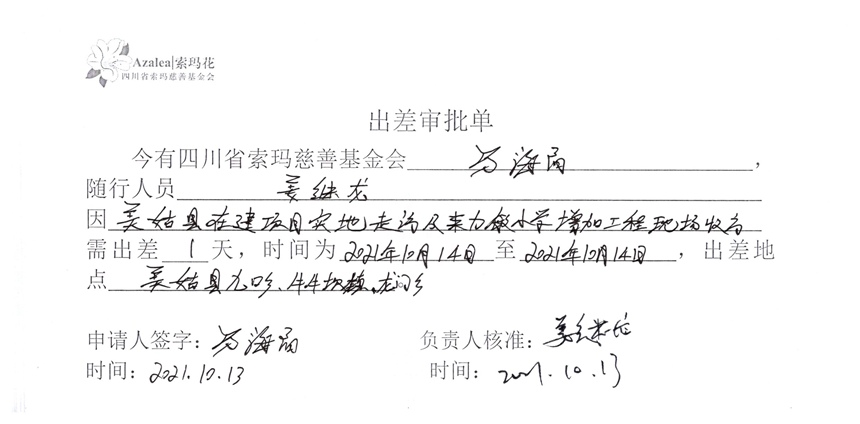 Azalea|索玛花
四川省索玛慈善基金会
出差审批单
今有四川省索玛慈善基金会 海 ，
随行人员 姜继龙
因 美姑县在建项目实地走访及来力 小学增加工程现场收
需出差 1 天，时间为 2021年10月14日 至 2021年10月14日 ，出差地
点 美姑县九口乡、牛牛坝镇、龙门乡
申请人签字： 海 负责人核准：
时间：2021.10.13 时间：2021.10.13